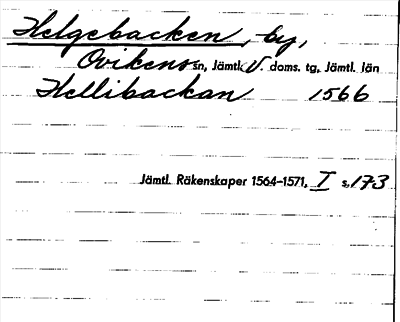 Helgebacken, by,
Ovikens sn, Jämtl. V. doms. tg, Jämtl. län
Hellibackan 1566
Jämtl. Räkenskaper 1564–1571, I s. 173